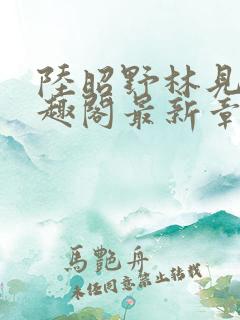 陸昭野林見
趣閣最新章
馬艷舟
未任同意禁止轉載